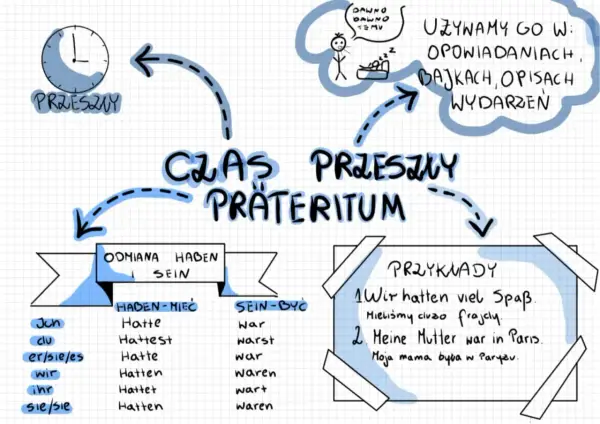 PRZESZŁY
DAWNO
DAWNO
TEMU
zzz
UŻYWAMY GO W:
OPOWIADANIACH,
BAJKACH, OPISACH
WYDARZEŃ
CZAS PRZESZŁY
PRÄTERITUM
ODMIANA HABEN
I SEIN
HABEN-MIEĆ SEIN-BYĆ
Hatte war
du Hattest warst
er/sie/es Hatte war
wir Hatten waren
ihr Hattet wart
sie/sie Hatten waren
PRZYKŁADY
1. Wir hatten viel Spaß.
Mieliśmy dużo frajdy.
2. Meine Mutter war in Paris.
Moja mama była w Paryżu.